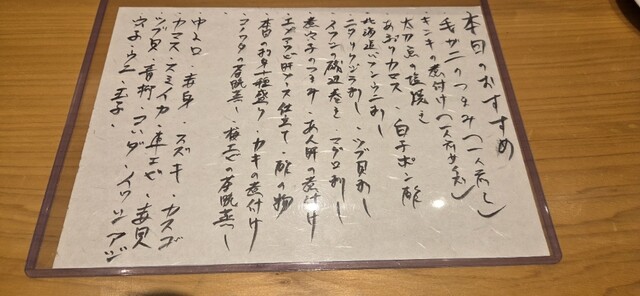 本日のおすすめ
毛ガニのつまみ(一人前)
キンキの煮付け(一人前サイズ)
太刀魚の塩焼き
あおりカマス・白子ポン酢
北海道バフンウニ刺し
ニタリクジラ刺し・ツブ貝刺し
イワシの磯辺巻き・マグロ刺し
煮穴子のつまみ・あん肝の煮付け
肝ソース仕立て・酢の物
本日のお造り種盛り・カキの煮付け
コノワタの茶碗蒸し・梅エビの茶碗蒸し
中トロ・赤身・スズキ・カスゴ
カマス・スミイカ・車エビ・赤貝
ツブ貝・青柳・コハダ・イワシ・アジ
穴子・ウニ・玉子